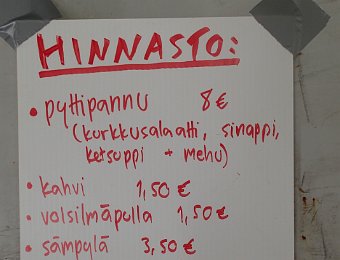 HINNASTO:
• pyttipannu 8 €
(kurkkusalaatti, sinappi,
ketsuppi + mehu)
• kahvi 1,50 €
• voisilmäpulla 1,50 €
• sämpylä 3,50 €